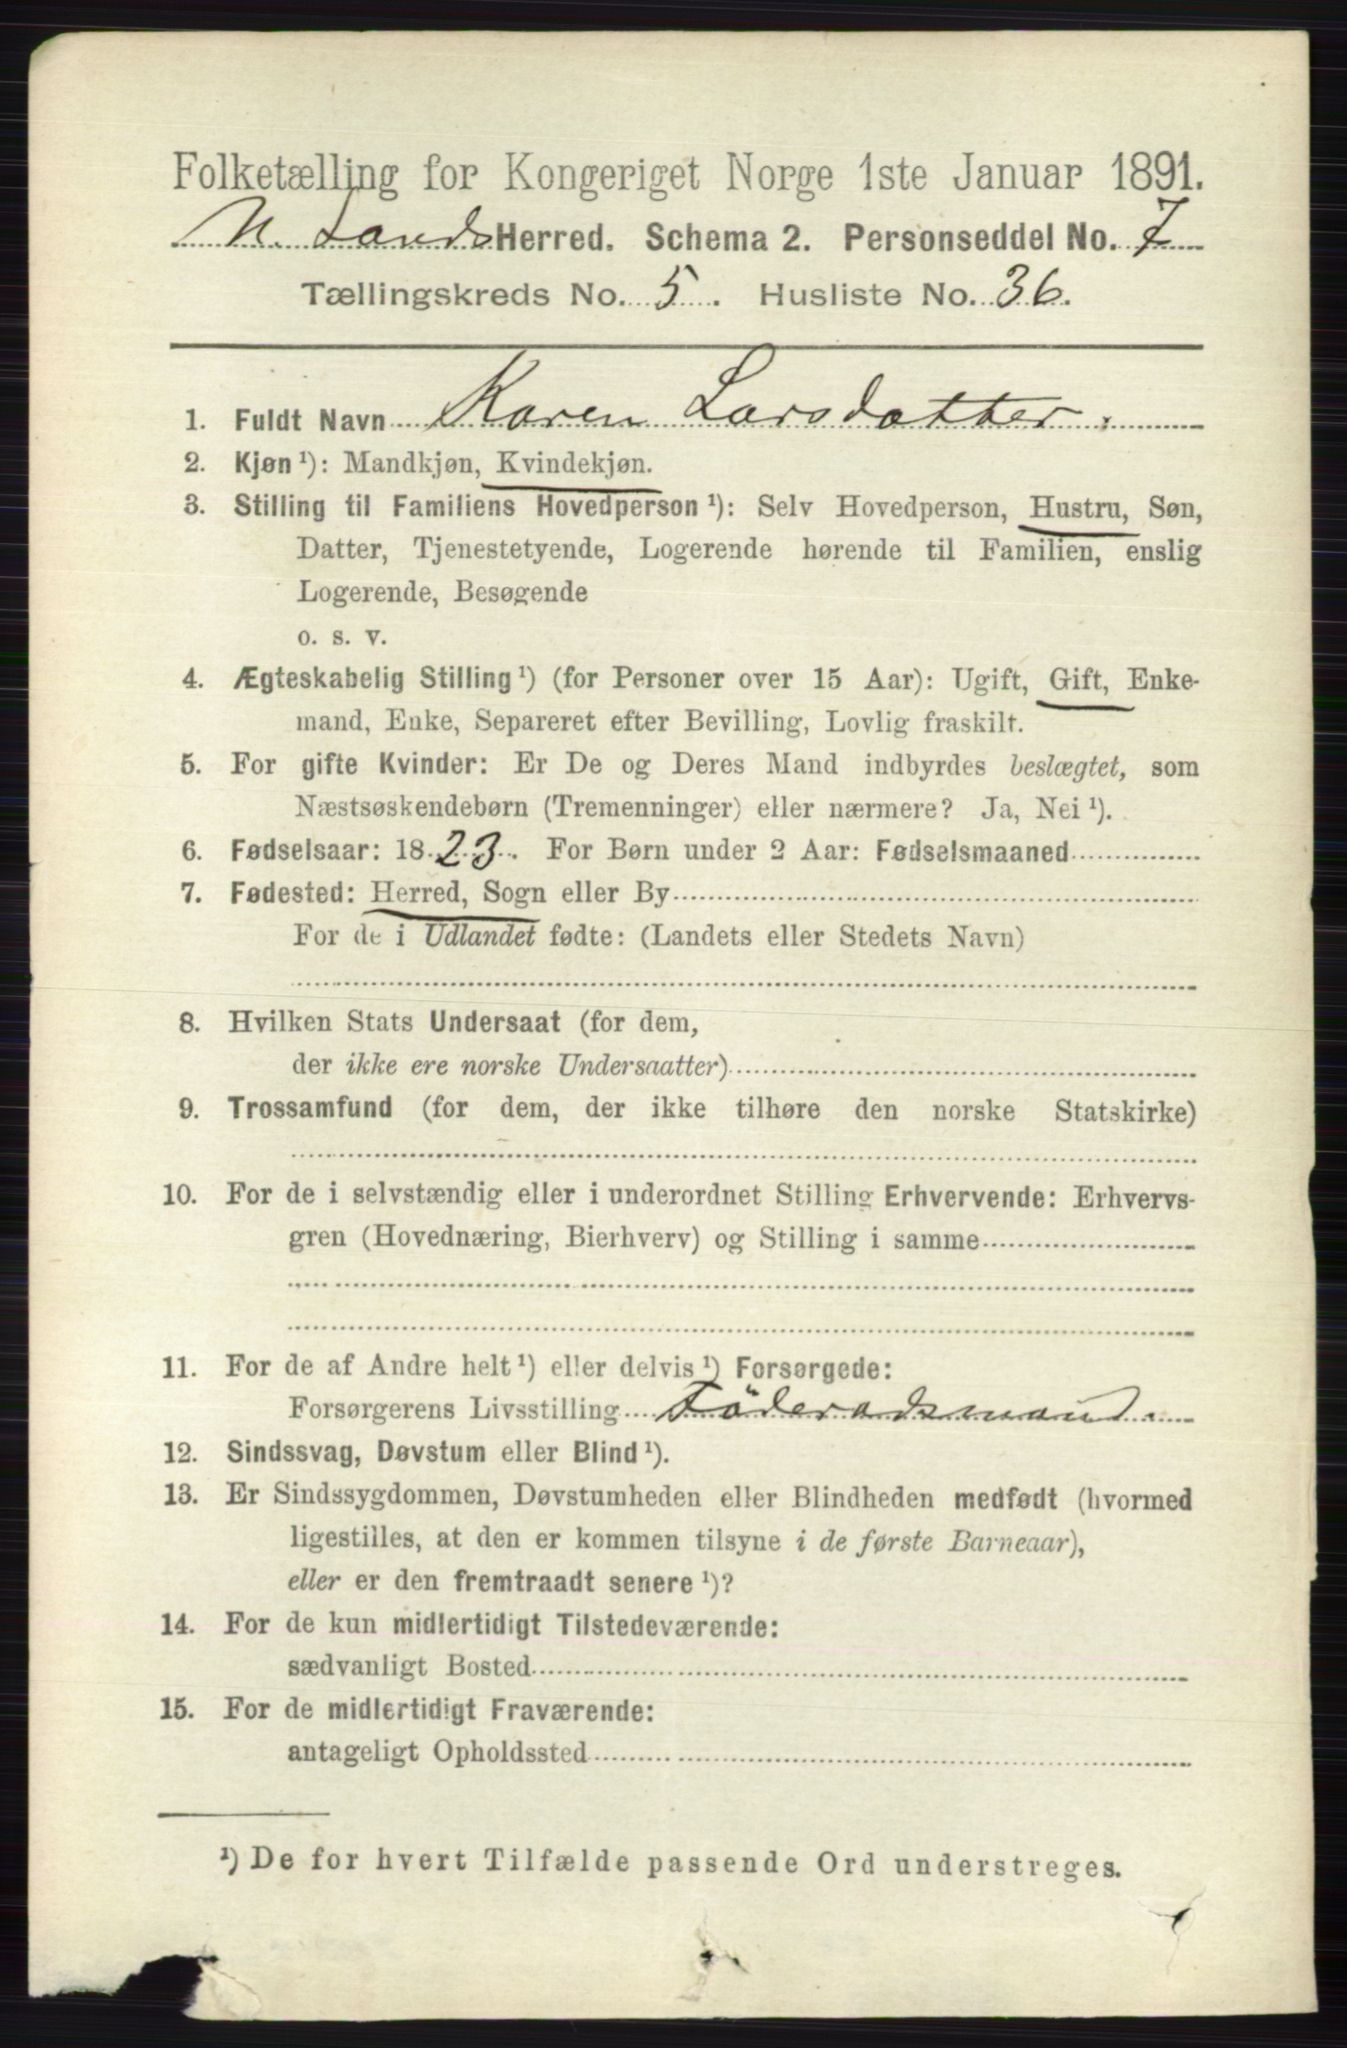 Folketælling for Kongeriget Norge 1ste Januar 1891.
N. Lands Herred. Schema 2. Personseddel No. 7
Tællingskreds No. 5. Husliste No. 36.
1. Fuldt Navn Karen Larsdatter.
2. Kjøn ¹): Mandkjøn, Kvindekjøn.
3. Stilling til Familiens Hovedperson ¹): Selv Hovedperson, Hustru, Søn,
Datter, Tjenestetyende, Logerende hørende til Familien, enslig
Logerende, Besøgende
o. s. v.
4. Ægteskabelig Stilling ¹) (for Personer over 15 Aar): Ugift, Gift, Enke-
mand, Enke, Separeret efter Bevilling, Lovlig fraskilt.
5. For gifte Kvinder: Er De og Deres Mand indbyrdes beslægtet, som
Næstsøskendebørn (Tremenninger) eller nærmere? Ja, Nei ¹).
6. Fødselsaar: 1823. For Børn under 2 Aar: Fødselsmaaned
7. Fødested: Herred, Sogn eller By
For de i Udlandet fødte: (Landets eller Stedets Navn)
8. Hvilken Stats Undersaat (for dem,
der ikke ere norske Undersaatter)
9. Trossamfund (for dem, der ikke tilhøre den norske Statskirke)
10. For de i selvstændig eller i underordnet Stilling Erhvervende: Erhvervs-
gren (Hovednæring, Bierhverv) og Stilling i samme
11. For de af Andre helt ¹) eller delvis ¹) Forsørgede:
Forsørgerens Livsstilling Föderadsmand.
12. Sindssvag, Døvstum eller Blind ¹).
13. Er Sindssygdommen, Døvstumheden eller Blindheden medfødt (hvormed
ligestilles, at den er kommen tilsyne i de første Barneaar),
eller er den fremtraadt senere ¹)?
14. For de kun midlertidigt Tilstedeværende:
sædvanligt Bosted
15. For de midlertidigt Fraværende:
antageligt Opholdssted
¹) De for hvert Tilfælde passende Ord understreges.